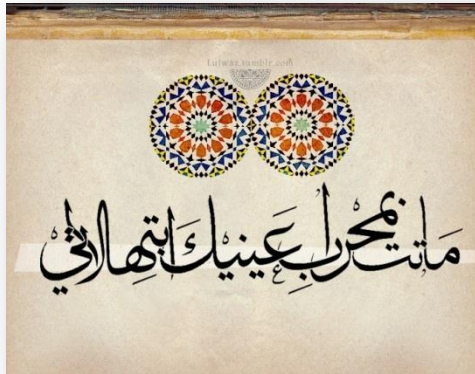 lulwaz.tumblr.com
ماتت بمحراب عَينيكَ ابتهالاتي